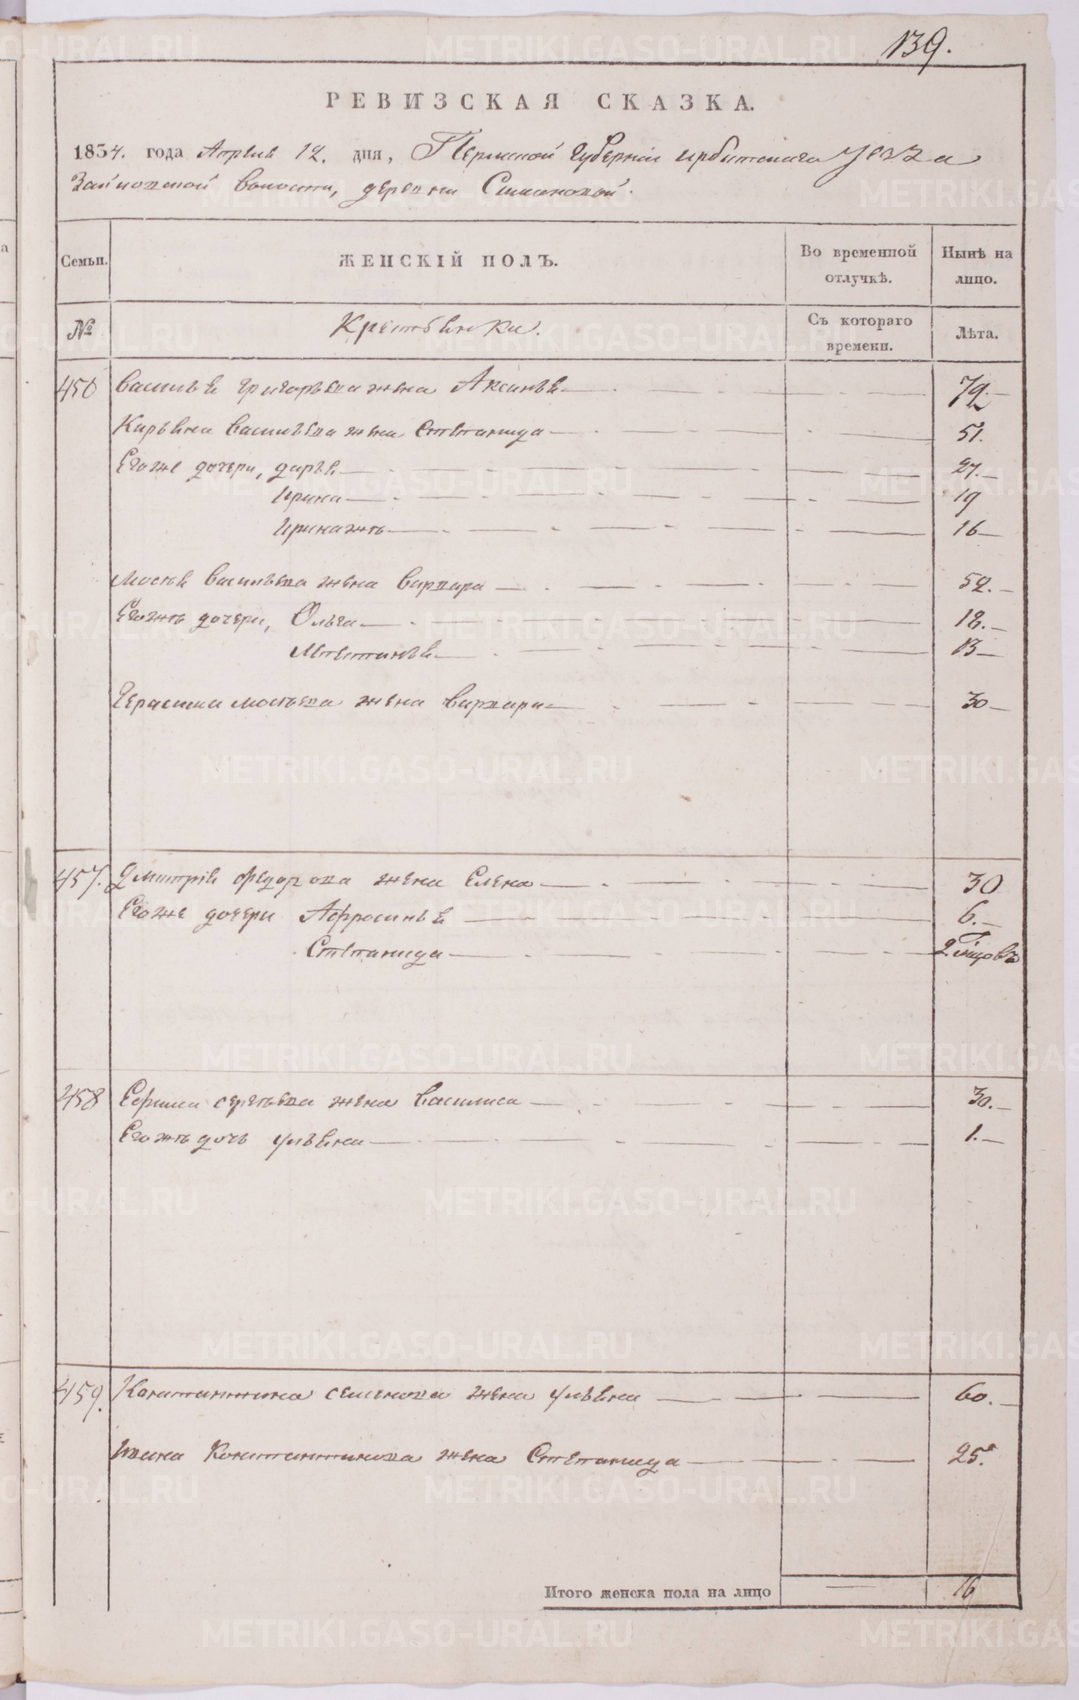 139.
РЕВИЗСКАЯ СКАЗКА.
1834. года Апреля 12. дня, Пермской Губернiи ирбитскаго уезда
волости, деревни Симановой.
Семьи. ЖЕНСКІЙ ПОЛЪ. Во временной отлучкѣ. Нынѣ на лицо.
№ Крестьянки. Съ котораго времени. Лѣта.
450 василья григорьева жена Аксинья 72.
Кирьяна васильева жена степанида 51.
Егоже дочери, дарья 27.
Ирина 19
16
Мосея васильева жена варвара 52.
Егожъ дочери, Ольга 18.
13
Герасима мосеева жена варвара 30
457. Дмитрiя федорова жена Елена 30
Егоже дочери Афросинья 6.
Степанида 2.
458 Ефима сергеева жена василиса 30.
Егожъ дочь ульяна 1.
459. Константина семенова жена ульяна 60.
Ивана Константинова жена Степанида 25.
Итого женска пола на лицо 16
METRIKI.GASO-URAL.RU